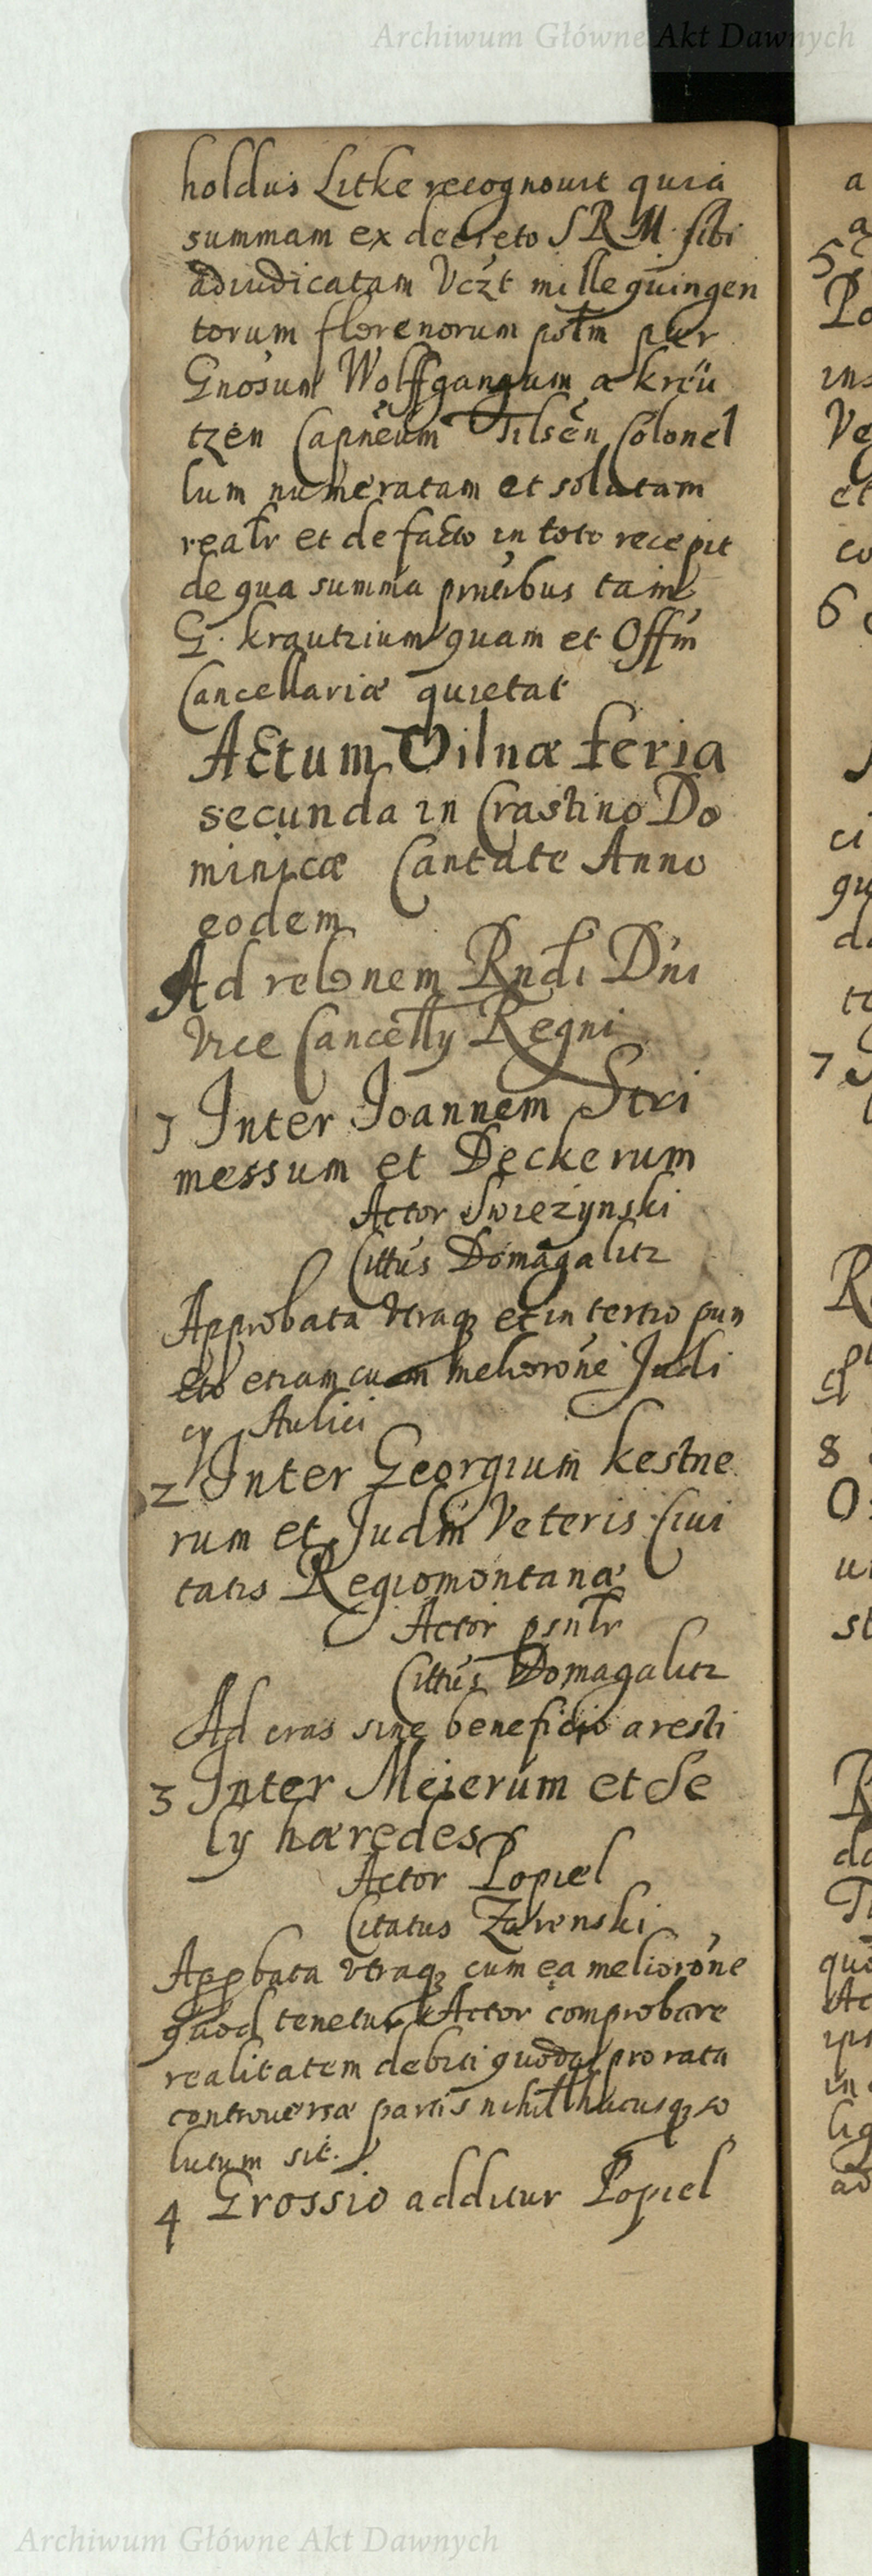 Archiwum Główne Akt Dawnych
holdus Litke recognouit quia
summam ex decreto S R M. sibi
adiudicatam Vczt mille quingen
torum florenorum postm per
Gnosum Wolffgangum a kreü
tzen Capneum Tilsen Colonel
lum numeratam et solutam
realr et de facto in toto recepit
de qua summa prntibus tam
G. krautzium quam et Offm
Cancellariæ quietat
Actum Vilnæ feria
secunda in Crastino Do
minicæ Cantate Anno
eodem
Ad relonem Rndi Dni
Vice Cancelly Regni
1 Inter Joannem Stri
messum et Deckerum
Actor Swiezynski
Cittus Domagalitz
Approbata vtraq et in tertio pun
cto etiam cum meliorone Judi
cy Aulici
2 Inter Georgium kestne
rum et Judm Veteris Ciui
tatis Regiomontanæ
Actor psntr
Cittus Domagalitz
Ad cras sine beneficio aresti
3 Inter Meierum et Se
ly hæredes
Actor Popiel
Citatus Zarenski
Appbata vtraq cum ea meliorone
quod tenetur Actor comprobare
realitatem debiti quodq pro rata
controuersæ partis nihil hucusq so
lutum sit.
4 Grossio additur Popiel
a
a
5
Po
ins
Ve
et
co
6
ci
qu
da
7
R
8
O
st
R
da
quo
Ac
ips
in
lig
ad
Archiwum Główne Akt Dawnych